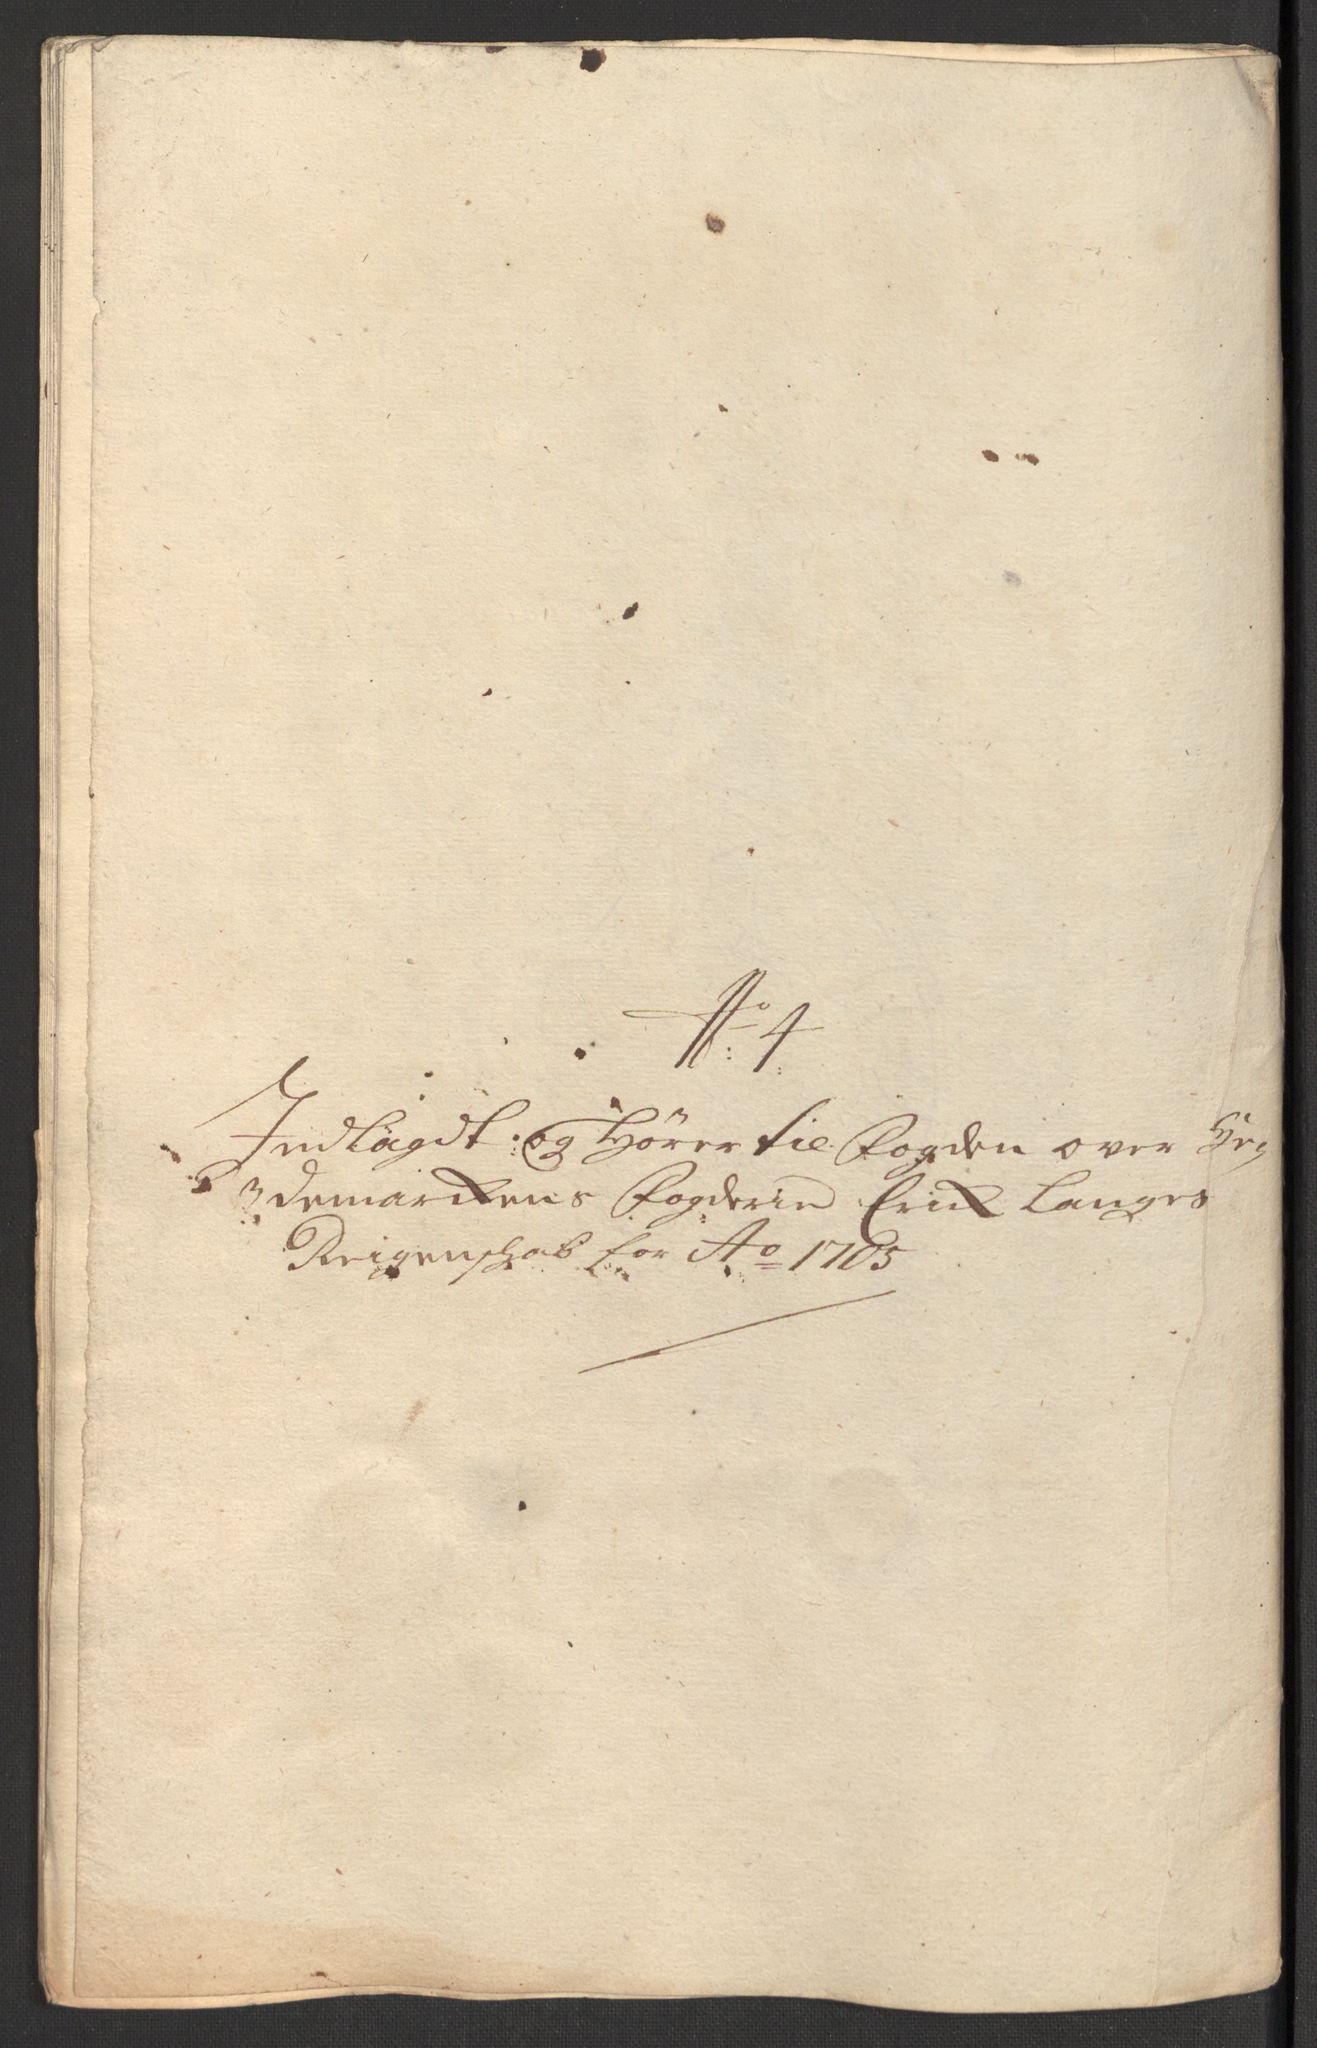 No: 4:
Indlagdt og Hörer til Fogden over Heg
demarkens Fogderie Erick Langes
Reigenskab for Ao 1705